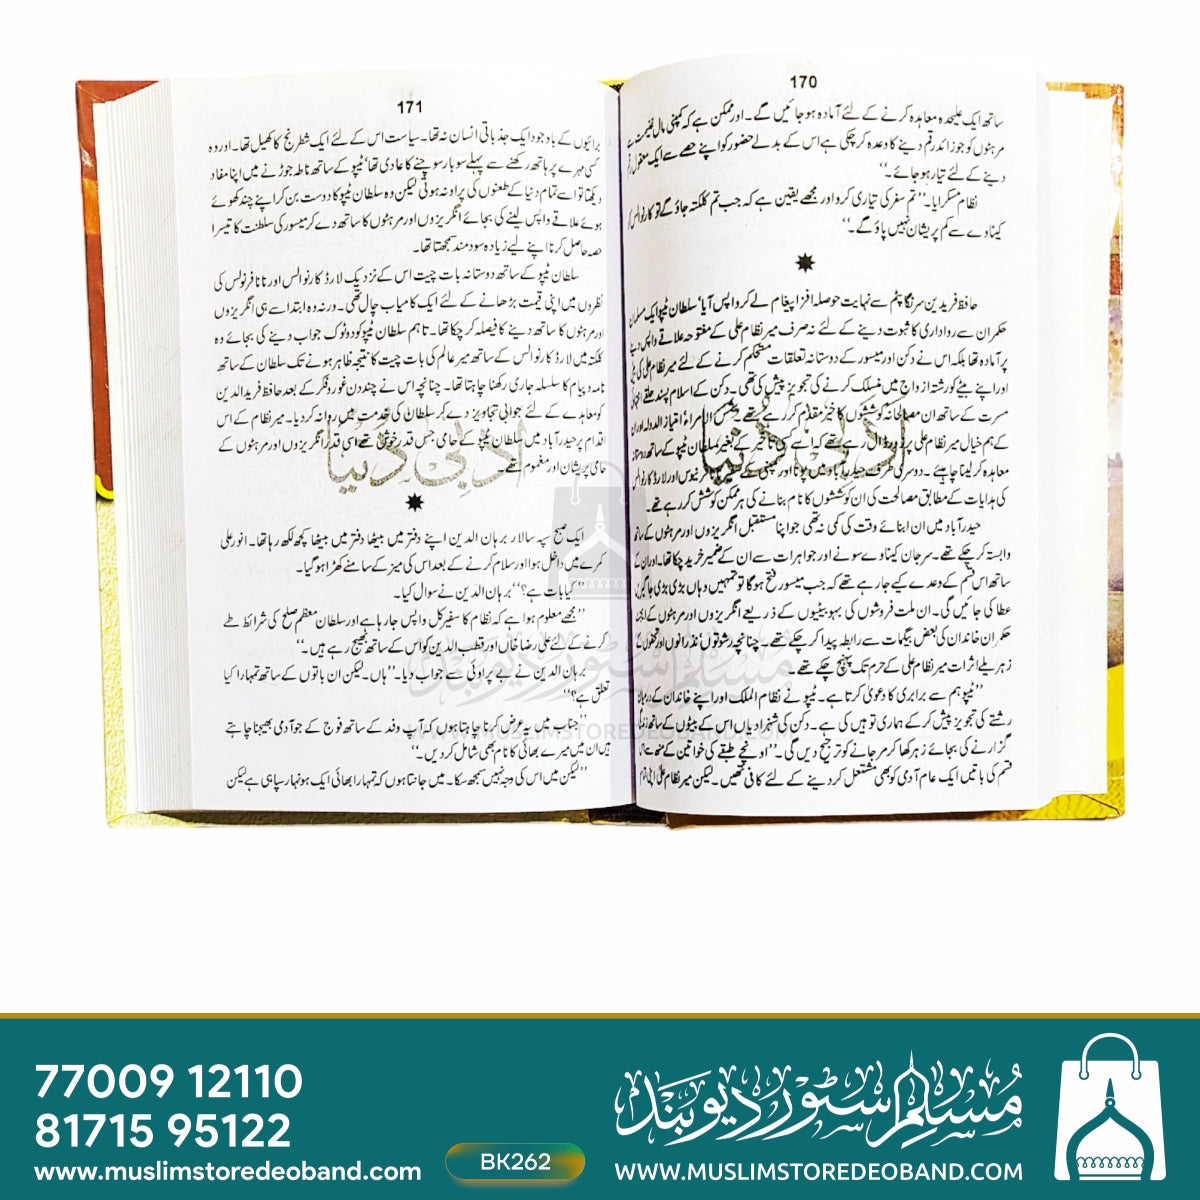 170
ساتھ ایک علیحدہ معاہدہ کرنے کے لئے آمادہ ہو جائیں گے۔ اور ممکن ہے کہ کمپنی مال غنیمت سے
مرہٹوں کو جو زائد رقم دینے کا وعدہ کر چکی ہے اس کے بدلے حضور کو اپنے حصے سے ایک معقول رقم
دینے کے لئے تیار ہو جائے۔‘‘
نظام مسکرایا۔ ’’تم سفر کی تیاری کرو اور مجھے یقین ہے کہ جب تم کلکتہ جاؤ گے تو کارنوالس کو
کیناوے سے کم پریشان نہیں پاؤ گے۔‘‘
حافظ فریدین سرنگا پٹم سے نہایت حوصلہ افزا پیغام لے کر واپس آیا، سلطان ٹیپو ایک مسلمان
حکمران سے رواداری کا ثبوت دینے کے لئے نہ صرف میر نظام علی کے مفتوحہ علاقے واپس دینے
پر آمادہ تھا بلکہ اس نے دکن اور میسور کے دوستانہ تعلقات مستحکم کرنے کے لئے میر نظام علی کی بیٹی
اور اپنے بیٹے کو رشتہ ازواج میں منسلک کرنے کی تجویز پیش کی تھی۔ دکن کے اسلام پسند حلقے انتہائی
مسرت کے ساتھ ان مصالحانہ کوششوں کا خیر مقدم کر رہے تھے۔ شمس الامراء امتیاز الدولہ اور ان
کے ہم خیال میر نظام علی پر زور ڈال رہے تھے کہ اسے کسی تاخیر کے بغیر سلطان ٹیپو کے ساتھ دوستانہ
معاہدہ کر لینا چاہئے۔ دوسری طرف حیدر آباد میں پونا اور کمپنی کے سفیر نانا فرنویس اور لارڈ کارنوالس
کی ہدایات کے مطابق مصالحت کی ان کوششوں کا نام بنانے کی ہر ممکن کوشش کر رہے تھے۔
حیدر آباد میں ان ابنائے وقت کی کمی نہ تھی جو اپنا مستقبل انگریزوں اور مرہٹوں کے ساتھ
وابستہ کر چکے تھے۔ سر جان کیناوے سونے اور جواہرات سے ان کے ضمیر خرید چکا تھا۔ اور ان کے
ساتھ اس قسم کے وعدے کیے جا رہے تھے کہ جب میسور فتح ہو گا تو تمہیں وہاں بڑی بڑی جاگیریں
عطا کی جائیں گی۔ ان ملت فروشوں کی بہو بیٹیوں کے ذریعے انگریزوں اور مرہٹوں کے ایجنٹ
حکمران خاندان کی بعض بیگمات سے رابطہ پیدا کر چکے تھے۔ چنانچہ رشوتوں، نذرانوں اور تحفوں کے
زہریلے اثرات میر نظام علی کے حرم تک پہنچ چکے تھے۔
’’ٹیپو ہم سے برابری کا دعویٰ کرتا ہے۔ ٹیپو نے نظام الملک اور اپنے خاندان کے درمیان
رشتے کی تجویز پیش کر کے ہماری توہین کی ہے۔ دکن کی شہزادیاں اس کے بیٹوں کے ساتھ زندگی
گزارنے کی بجائے زہر کھا کر مر جانے کو ترجیح دیں گی۔‘‘ اونچے طبقے کی خواتین کے منہ سے اس
قسم کی باتیں ایک عام آدمی کو بھی مشتعل کر دینے کے لئے کافی تھیں۔ لیکن میر نظام علی اپنی تمام
171
برائیوں کے باوجود ایک جذباتی انسان نہ تھا۔ سیاست اس کے لئے ایک شطرنج کا کھیل تھا۔ اور وہ
کسی مہرے پر ہاتھ رکھنے سے پہلے سو بار سوچنے کا عادی تھا، ٹیپو کے ساتھ ناطہ جوڑنے میں اپنا مفاد
دیکھتا تو اسے تمام دنیا کے طعنوں کی پروا نہ ہوتی لیکن وہ سلطان ٹیپو کا دوست بن کر اپنے چند کھوئے
ہوئے علاقے واپس لینے کی بجائے انگریزوں اور مرہٹوں کا ساتھ دے کر میسور کی سلطنت کا تیسرا
حصہ حاصل کرنا اپنے لیے زیادہ سود مند سمجھتا تھا۔
سلطان ٹیپو کے ساتھ دوستانہ بات چیت اس کے نزدیک لارڈ کارنوالس اور نانا فرنویس کی
نظروں میں اپنی قیمت بڑھانے کے لئے ایک کامیاب چال تھی۔ ورنہ وہ ابتدا سے ہی انگریزوں
اور مرہٹوں کا ساتھ دینے کا فیصلہ کر چکا تھا۔ تاہم سلطان ٹیپو کو دوٹوک جواب دینے کی بجائے وہ
کلکتہ میں لارڈ کارنوالس کے ساتھ میر عالم کی بات چیت کا نتیجہ ظاہر ہونے تک سلطان کے ساتھ
نامہ و پیام کا سلسلہ جاری رکھنا چاہتا تھا۔ چنانچہ اس نے چند دن غور و فکر کے بعد حافظ فرید الدین
کو معاہدے کے لئے جوابی تجاویز دے کر سلطان کی خدمت میں روانہ کر دیا۔ میر نظام کے اس
اقدام پر حیدر آباد میں سلطان ٹیپو کے حامی جس قدر خوش تھے اسی قدر انگریزوں اور مرہٹوں کے
حامی پریشان اور مغموم تھے۔
ایک صبح سپہ سالار برہان الدین اپنے دفتر میں بیٹھا دفتر میں بیٹھا کچھ لکھ رہا تھا۔ انور علی
کمرے میں داخل ہوا اور سلام کرنے کے بعد اس کی میز کے سامنے کھڑا ہو گیا۔
’’کیا بات ہے؟‘‘ برہان الدین نے سوال کیا۔
’’مجھے معلوم ہوا ہے کہ نظام کا سفیر کل واپس جا رہا ہے اور سلطان معظم صلح کی شرائط طے
کرنے کے لئے علی رضا خاں اور قطب الدین کو اس کے ساتھ بھیج رہے ہیں۔‘‘
برہان الدین نے بے پروائی سے جواب دیا۔ ’’ہاں۔ لیکن ان باتوں کے ساتھ تمہارا کیا
تعلق ہے؟‘‘
’’جناب میں یہ عرض کرنا چاہتا ہوں کہ آپ وفد کے ساتھ فوج کے جو آدمی بھیجنا چاہتے
ہیں ان میں میرے بھائی کا نام بھی شامل کر دیں۔‘‘
’’لیکن میں اس کی وجہ نہیں سمجھ سکا۔ میں جانتا ہوں کہ تمہارا بھائی ایک ہونہار سپاہی ہے لیکن
ادبی دنیا
ادبی دنیا
مسلم سٹور دیوبند
WWW.MUSLIMSTOREDEOBAND.COM
77009 12110
81715 95122
www.muslimstoredeoband.com
BK262
مسلم سٹور دیوبند
WWW.MUSLIMSTOREDEOBAND.COM